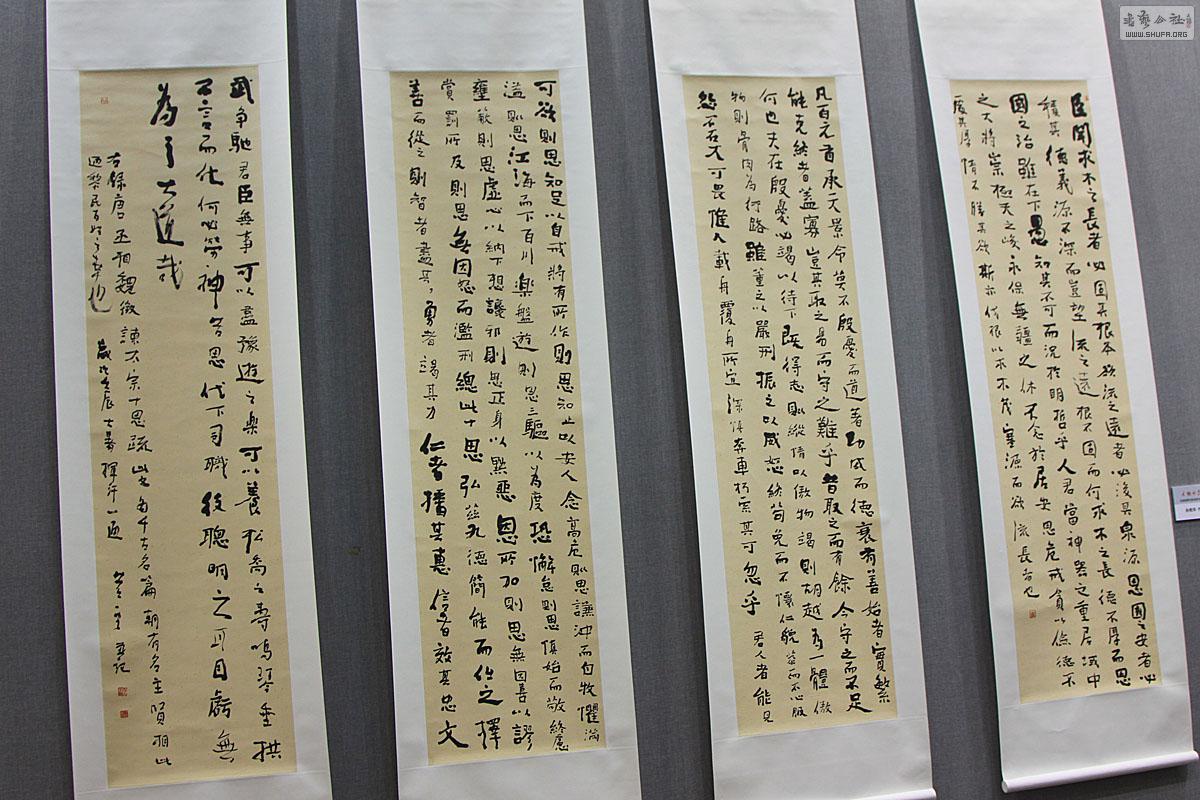 臣聞求木之長者必固其根本欲流之遠者必浚其泉源思國之安者必
積其德義源不深而豈望流之遠根不固而何求木之長德不厚而思
國之治雖在下愚知其不可而況於明哲乎人君當神器之重居域中
之大將崇極天之峻永保無疆之休不念於居安思危戒貪以儉德不
處其厚情不勝其欲斯亦伐根以求木茂塞源而欲流長者也
凡百元首承天景命莫不殷憂而道著功成而德衰有善始者實繁
能克終者蓋寡豈其取之易而守之難乎昔取之而有餘今守之而不足
何也夫在殷憂必竭以待下既得志則縱情以傲物竭則胡越為一體傲
物則骨肉為行路雖董之以嚴刑振之以威怒終苟免而不懷仁貌恭而不心服
怨不在大可畏惟人載舟覆舟所宜深慎奔車朽索其可忽乎君人者能見
可欲則思知足以自戒將有所作則思知止以安人念高危則思謙沖而自牧懼滿
溢則思江海而下百川樂盤遊則思三驅以為度恐懈怠則思慎始而敬終慮
壅蔽則思虛心以納下想讒邪則思正身以黜惡恩所加則思無因喜以謬
賞罰所及則思無因怒而濫刑總此十思弘茲九德簡能而任之擇
善而從之則智者盡其勇者竭其力仁者播其惠信者效其忠文
武爭馳君臣無事可以盡豫遊之樂可以養松喬之壽鳴琴垂拱
不言而化何必勞神苦思代下司職役聰明之耳目虧無
為之大道哉
右錄唐丞相魏徵諫太宗十思疏此文為千古名篇朝有名主賢相此
迺黎民百姓之幸也 歲次壬辰大暑揮汗一通
書藝公社
WWW.SHUFA.ORG